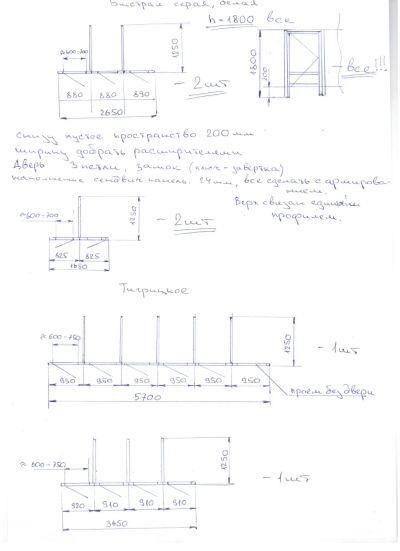 Быстрая серая, белая
h = 1800 все
≈600-700
1250
880 880 890
2650
- 2 шт
1800
200
- все!!!
снизу пустое пространство 200 мм
ширину добрать расширителями
Дверь 3 петли, замок (ключ-завёртка)
наполнение сендвич панель 24мм, все сделать с армирова-
нием.
Верх связан единым
профилем.
≈600-700
1250
825 825
1650
- 2 шт
≈600-750
1250
950 950 950 950 950 950
5700
- 1 шт
проем без двери
≈600-750
1250
920 910 910 910
3650
- 1 шт